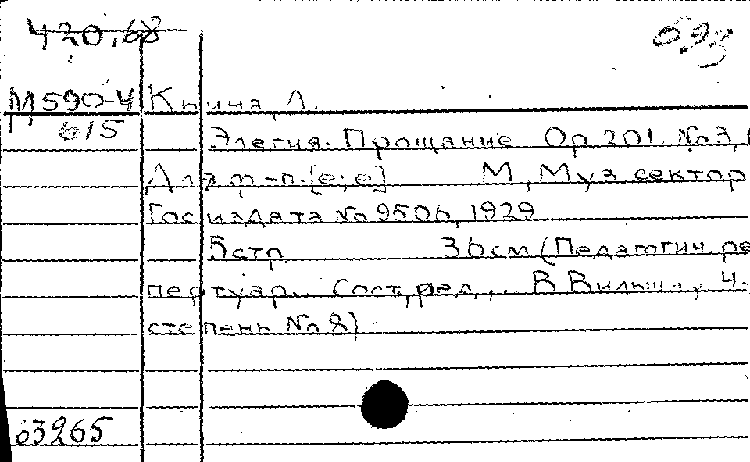 420,68
593
М590-4
615
Элегия. Прощание Ор 201. No3,
Для ф-п. [e; e] М, Муз сектор
Госиздата No 9506, 1929
5стр 36см (Педагогич. ре
пертуар. Сост, ред, В Вильш., 4-
степень No 8)
63265